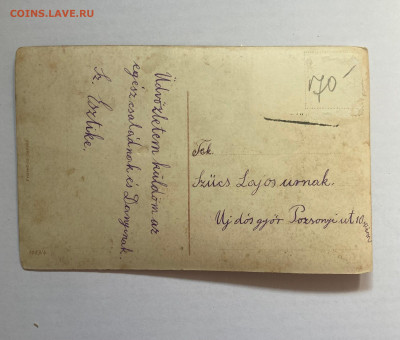 COINS.LAVE.RU
Üdvözletem küldöm az
egész családnak és
Sz. Esztike.
70
Tek.
Szücs Lajos urnak.
Uj diósgyőr Pozsonyi ut 10